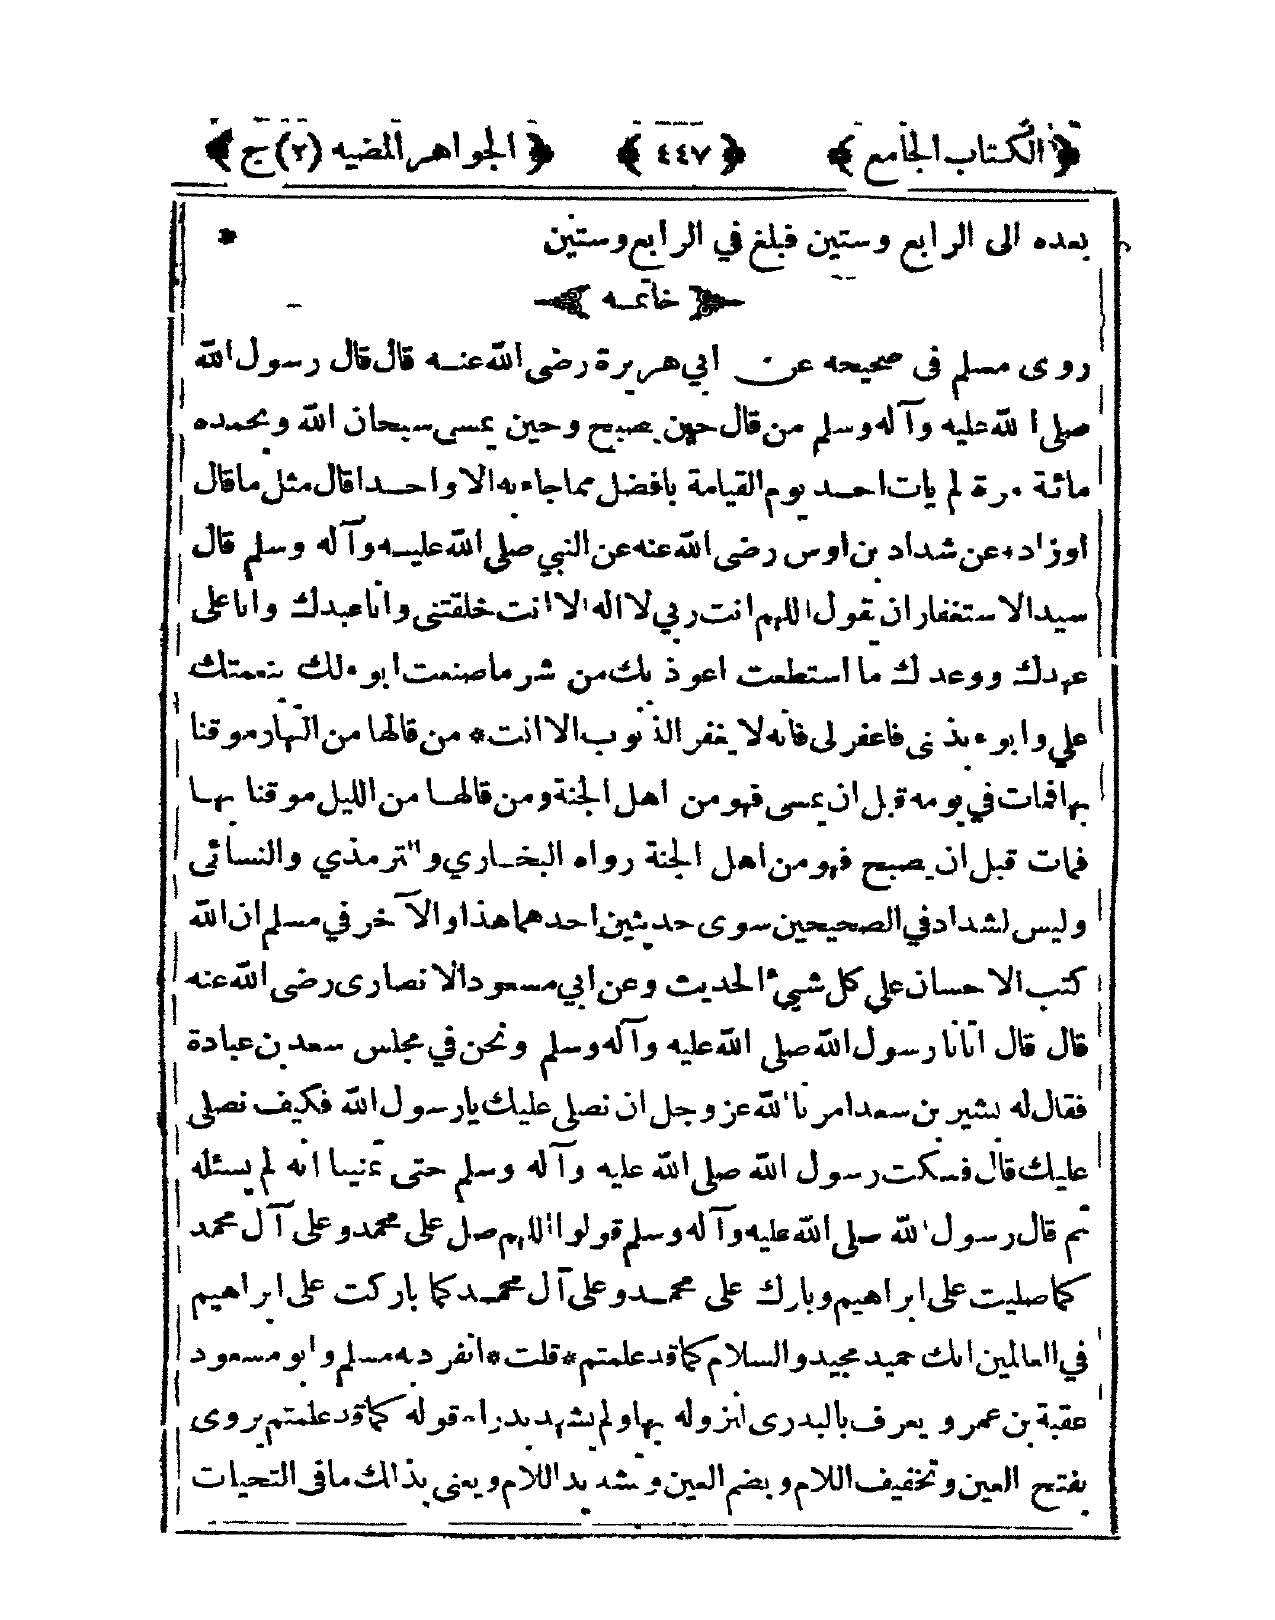 ﴿الكتاب الجامع﴾ ﴿٤٤٧﴾ ﴿الجواهر المضيه (٢) ج﴾
بعده الى الرابع وستين فبلغ في الرابع وستين *
خاتمه
روى مسلم فى صحيحه عن ابي هريرة رضى الله عنه قال قال رسول الله
صلى الله عليه وآله وسلم من قال حين يصبح وحين يمسى سبحان الله وبحمده
مائة مرة لم يأت احد يوم القيامة بافضل مما جاء به الا واحدا قال مثل ما قال
أو زاد * عن شداد بن اوس رضى الله عنه عن النبي صلى الله عليه وآله وسلم قال
سيد الاستغفار ان يقول اللهم انت ربي لا اله الا انت خلقتنى وانا عبدك وانا على
عهدك ووعدك ما استطعت اعوذ بك من شر ما صنعت ابوء لك بنعمتك
علي وابوء بذنبى فاغفر لى فانه لا يغفر الذنوب الا انت * من قالها من النهار موقنا
بها فمات في يومه قبل ان يمسى فهو من اهل الجنة ومن قالها من الليل موقنا بها
فمات قبل ان يصبح فهو من اهل الجنة رواه البخاري والترمذي والنسائى
وليس لشداد في الصحيحين سوى حديثين احدهما هذا والآخر في مسلم ان الله
كتب الاحسان علي كل شيئ الحديث وعن ابي مسعود الانصارى رضى الله عنه
قال قال اتانا رسول الله صلى الله عليه وآله وسلم ونحن في مجلس سعد بن عبادة
فقال له بشير بن سعد امرنا الله عز وجل ان نصلى عليك يارسول الله فكيف نصلى
عليك قال فسكت رسول الله صلى الله عليه وآله وسلم حتى تمنينا انه لم يسئله
ثم قال رسول الله صلى الله عليه وآله وسلم قولوا اللهم صل على محمد وعلى آل محمد
كما صليت على ابراهيم وبارك على محمد وعلى آل محمد كما باركت على ابراهيم
في العالمين انك حميد مجيد والسلام كما قد علمتم * قلت * انفرد به مسلم وابو مسعود
عقبة بن عمرو يعرف بالبدرى لنزوله بها ولم يشهد بدراء قوله كما قد علمتم يروى
بفتح العين وتخفيف اللام وبضم العين وتشديد اللام ويعنى بذالك ما فى التحيات